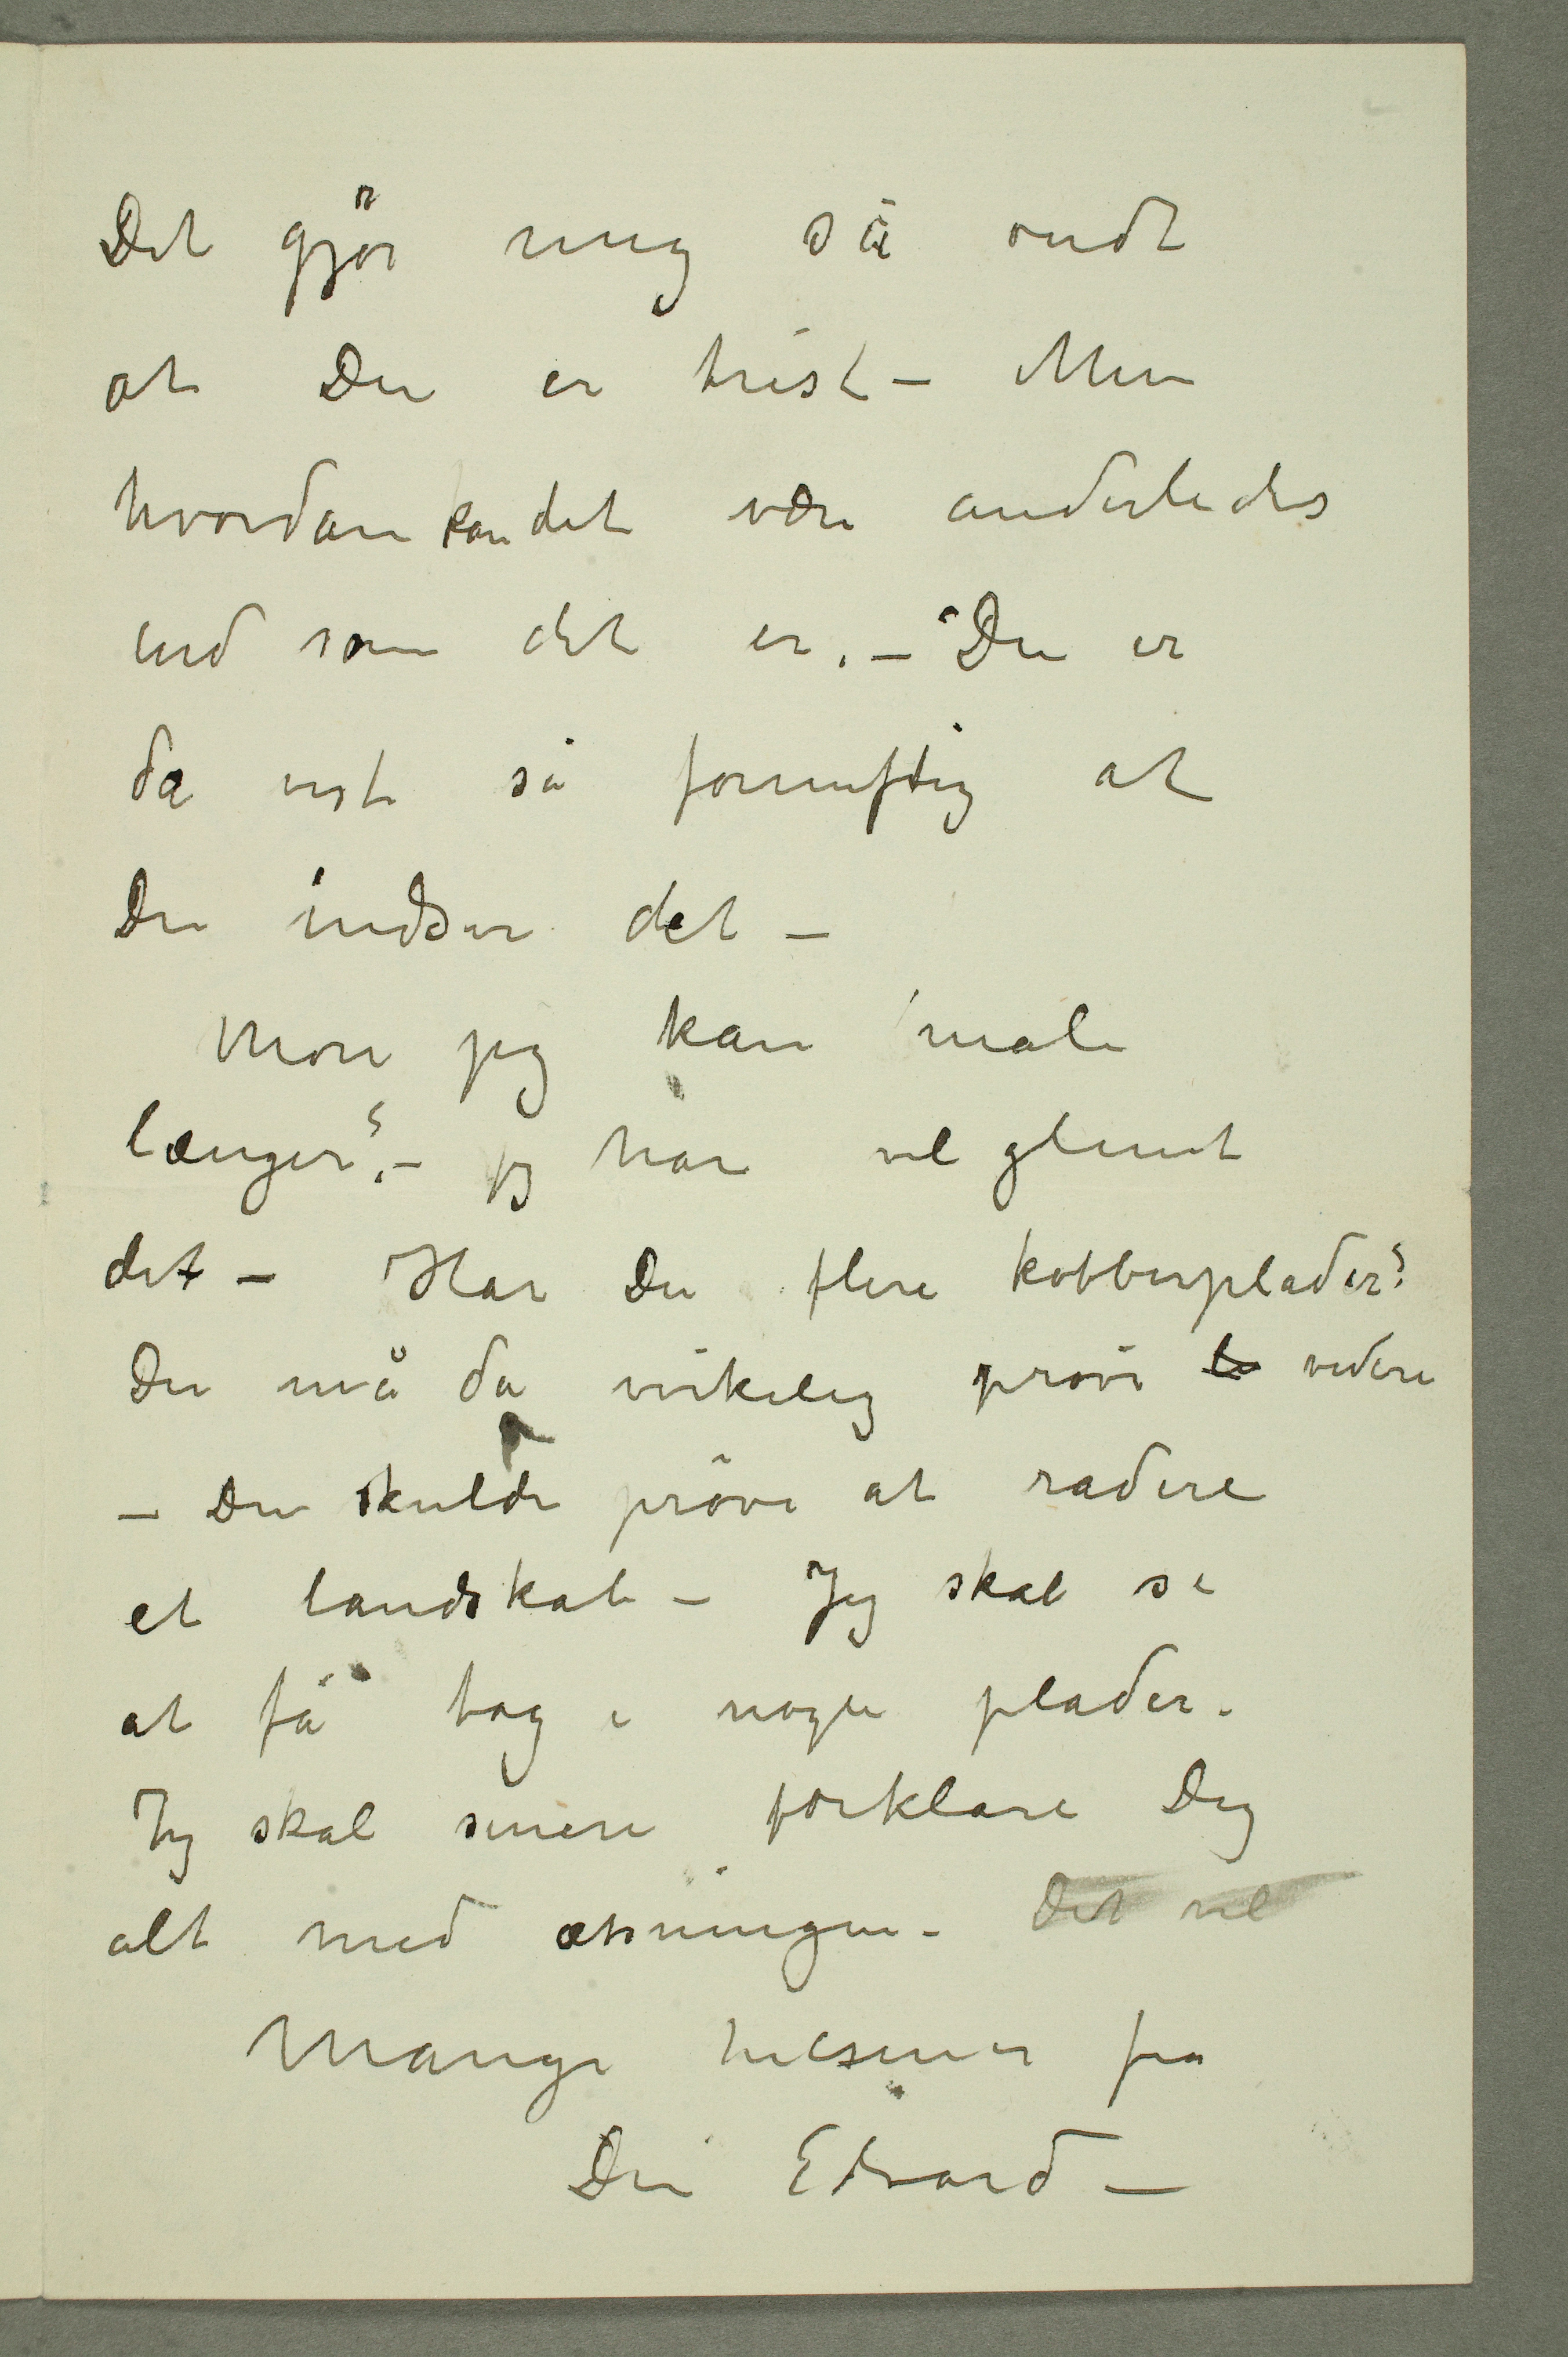 Det gjør mig så ondt
at Du er trist – Men
hvordan kan det være anderledes
end som det er. – Du er
da visst så fornuftig at
Du indser det –
Mon jeg kan male
længer? – jeg har vel glemt
det – Har Du flere kobberplader?
Du må da virkelig prøve videre
– Du skulde prøve at radere
et landskab – Jeg skal se
at få tag i nogle plader.
Jeg skal senere forklare Dig
alt med ætsningen – Det vil
Mange hilsener fra
Din Edvard –